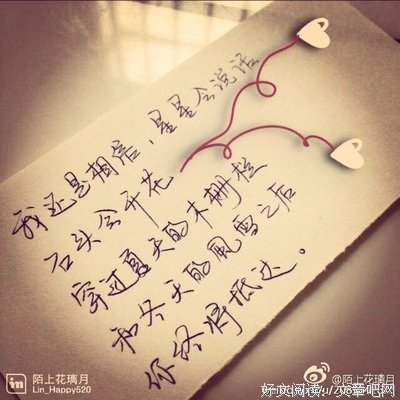 我还是相信，星星会说话
石头会开花
穿过夏天的木栅栏
和冬天的风雪之后
你终将抵达。
in 陌上花璃月
Lin_Happy520
@陌上花璃月
好文阅读
文章吧网